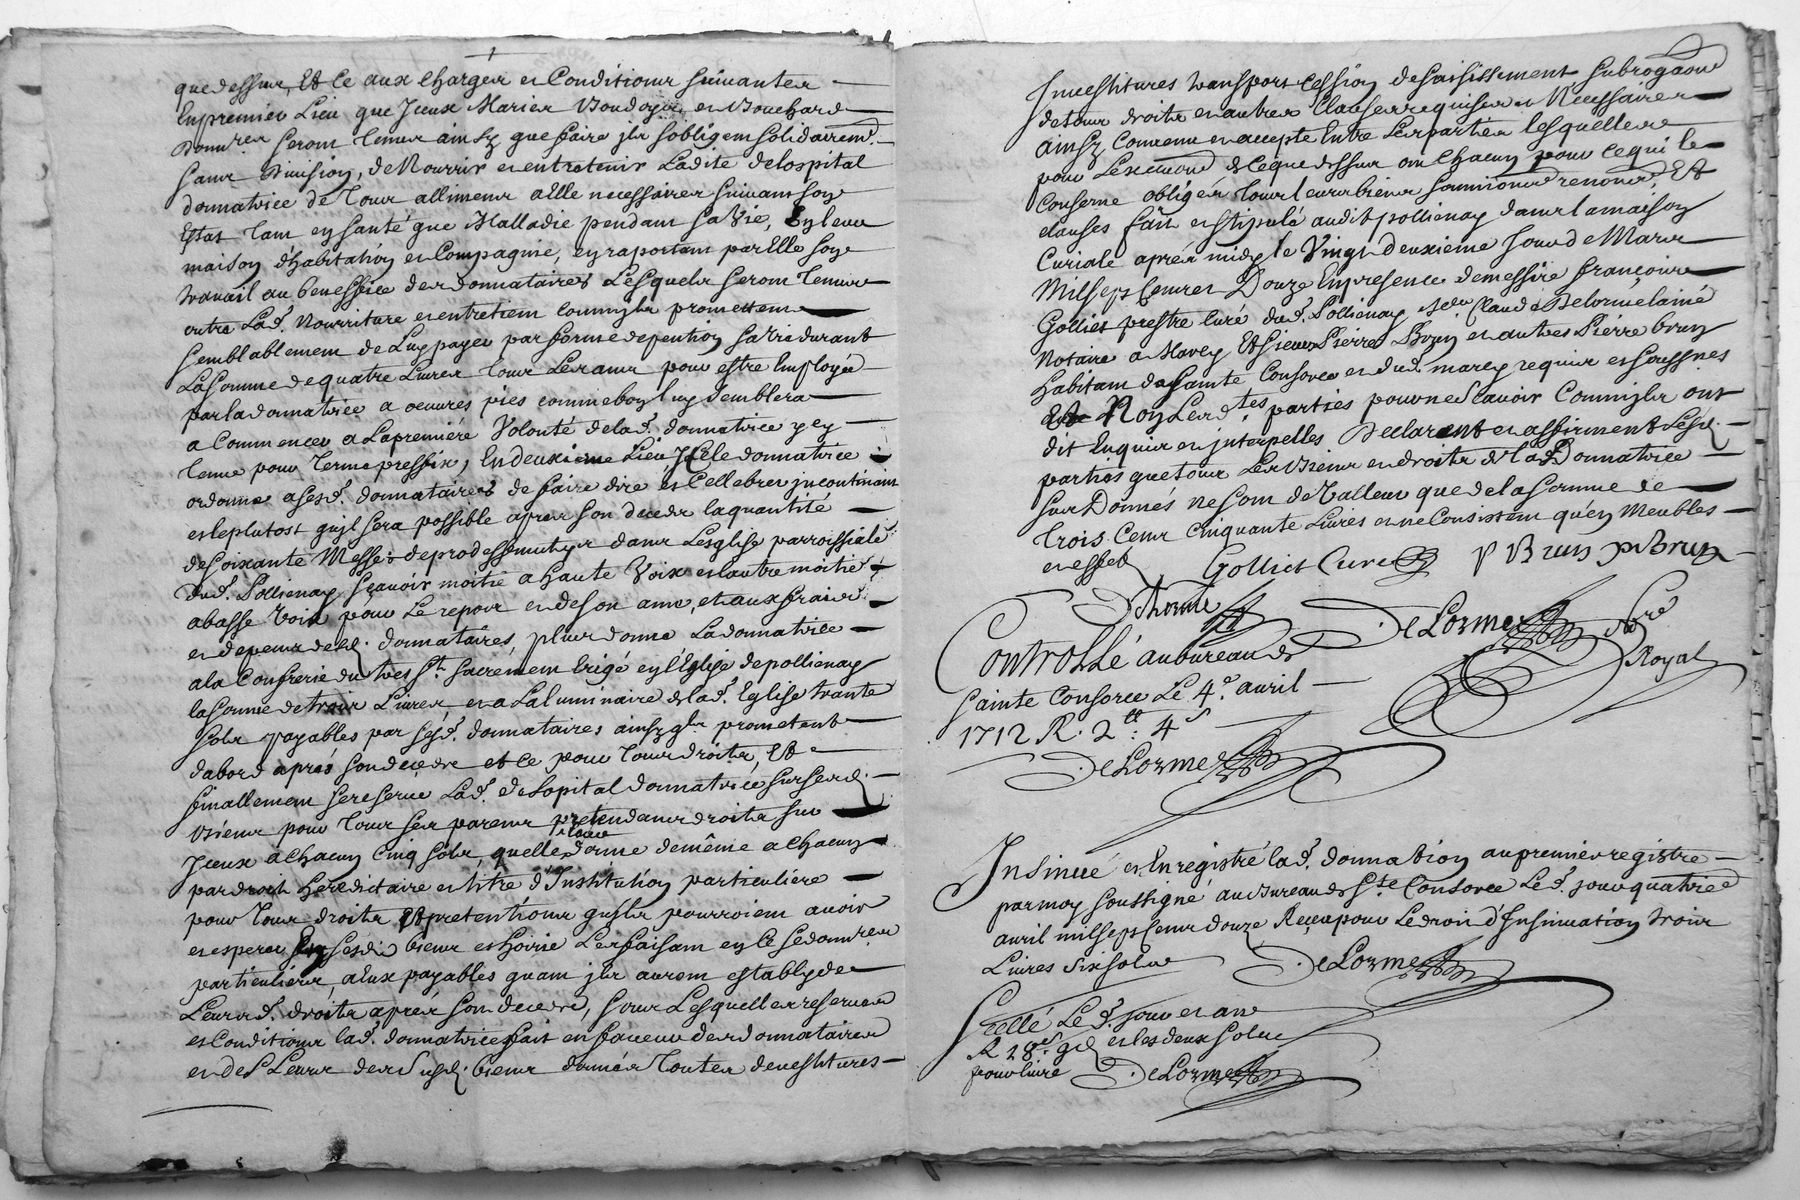 que dessus, Et Ce aux Charges et Conditions suivantes
En premier Lieu que Jceux Mariés Boudoyé et Bouchard
seront tenus ainsy que faire jls sobligent solidairemt.
sans Division, de Nourrir et entretenir Ladite delospital
donnatrice de tous allimens a Elle necessaires suivant son
Estat tant en santé que Malladie pendant sa Vie, En leur
maison d'habitation et Compagnie, en raportant par Elle son
travail au beneffice des donnataires Lesquels seront tenus
outre Lad. Nourriture et entretien comm'jls promettent
semblablement de Luy payer par forme de pention sa vie durant
La somme de quatre Livres tous Les ans pour estre Employée
par la donnatrice a oeuvres pies comme bon luy semblera
a Commencer a La premiére Volonté de lad. donnatrice y ey
tenue pour terme preffix, En deuxieme Lieu Jcele donnatrice
ordonne a sesd. donnataires de faire dire et Cellebrer jncontinant
et le plutost qu'jl sera possible apres son deceds la quantité
de soixante Messes de prodeffunctys dans Lesglise parroissialle
dud. Pollienay sçavoir moitié a haute Voix et lautre moitié
a basse Voix pour Le repos de son ame, et aux frais
et depens desd. donnataires, plus donne La donnatrice
a la Confrerie du tres St. sacrement Erigé en l'Eglise de pollienay
la somme de trois Livres et a La Luminaire de lad. Eglise trante
sols payables par sesd. donnataires ainsy qls prometent
dabord aprés son deceds et ce pour tous droits, Et
finallement se reserve Lad. de Lopital donnatrice sur sesd.
biens pour tous ses parens pretendans droits sur
Jceux a chacun Cinq sols, quelle donne de même a chacun
par droit Hereditaire et titre d'Institution particuliere
pour tous droits et pretentions qu'jls pourroient avoir
et esperer sur sesd. biens et hoirie Les faisant en Ce ses donnres
particuliers, a Eux payables quant jls auront estably de
Leursd. droits aprés son deceds, sous Lesquelles reserves
et Conditions lad. donnatrice fait en faveur des donnataires
et des Leurs des susd. biens donnés toutes devestitures
Jnvestitures transport cession desaisissement subrogaon
de tous droits et autres Clauses requises et Necessaires
ainsy Convenu et accepté Entre Les parties lesquelles
pour Lexecuon de Ce que dessus ont chacun pour ce qui le
Conserne obligés tous leurs biens soumions renonons Et
clauses fait et stipulé audit pollienay dans la maison
Curiale aprés midy le Vingt deuxieme jour de Mars
Mil sept Cent Douze En presence de messire françois
Golliet prestre Curé dud. Pollienay, sr. Claude Delorme lainé
Notaire a Marcy Et sieurs Pierre Brun et autres Pierre brun
Habitant de sainte Consorce et dud. marcy requis et soussignés
Et Non Les dtes parties pour ne sçavoir Comm'jls ont
dit Enquis et jnterpellés Declarent et affirment Lesd.
parties que tous Les biens et droits de lad. Donnatrice
sus Donnés ne sont de Valleur que de la somme de
trois Cent Cinquante Livres et ne Consistent qu'en Meubles
et effets
Golliet Curé P Brun P Brun
Delorme
DeLorme Nore Royal
Controllé au bureau de
Sainte Consorce Le 4e. avril
1712 R. 2tt: 4s
DeLorme
Insinué et Enregistré lad. donnation au premier registre
par moy soussigné au Bureau de Ste Consorce Led. jour quatrie
avril mil sept Cent douze Reçeu pour Le droit d'Insinuation trois
Livres six sols
DeLorme
Scellé Led. jour et an
R 28s. 9d et les deux sols
pour livre
DeLorme